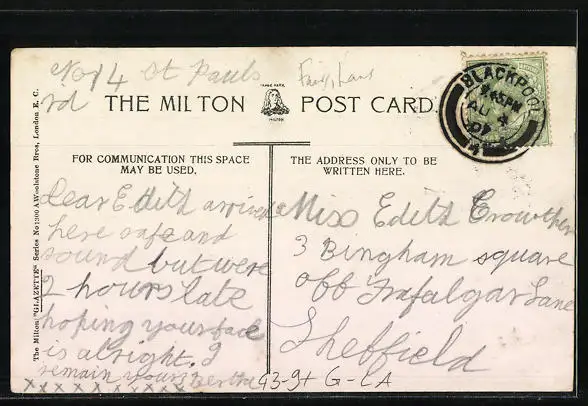 No 14 St Pauls
rd
THE MILTON POST CARD
TRADE MARK
MILTON
BLACKPOOL
7 45 PM
AU 4
07
The Milton "GLAZETTE" Series No 1200 A Woolstone Bros, London E. C.
FOR COMMUNICATION THIS SPACE
MAY BE USED.
Dear Edith arrived
here safe and
sound but were
2 hours late
hoping your face
is alright. I
remain yours Bertha
xxxxxxxxxxxx
THE ADDRESS ONLY TO BE
WRITTEN HERE.
Miss Edith Crowther
3 Bingham square
off Trafalgar Lane
Sheffield
93-9+ G-LA